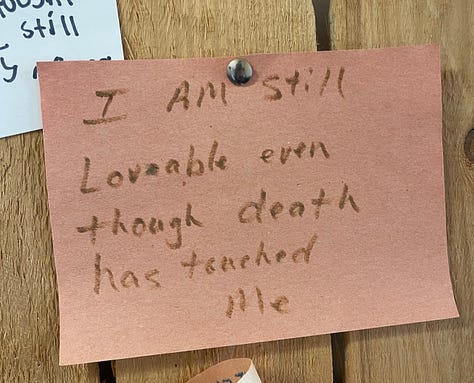 still
I AM still
Loveable even
though death
has touched
Me